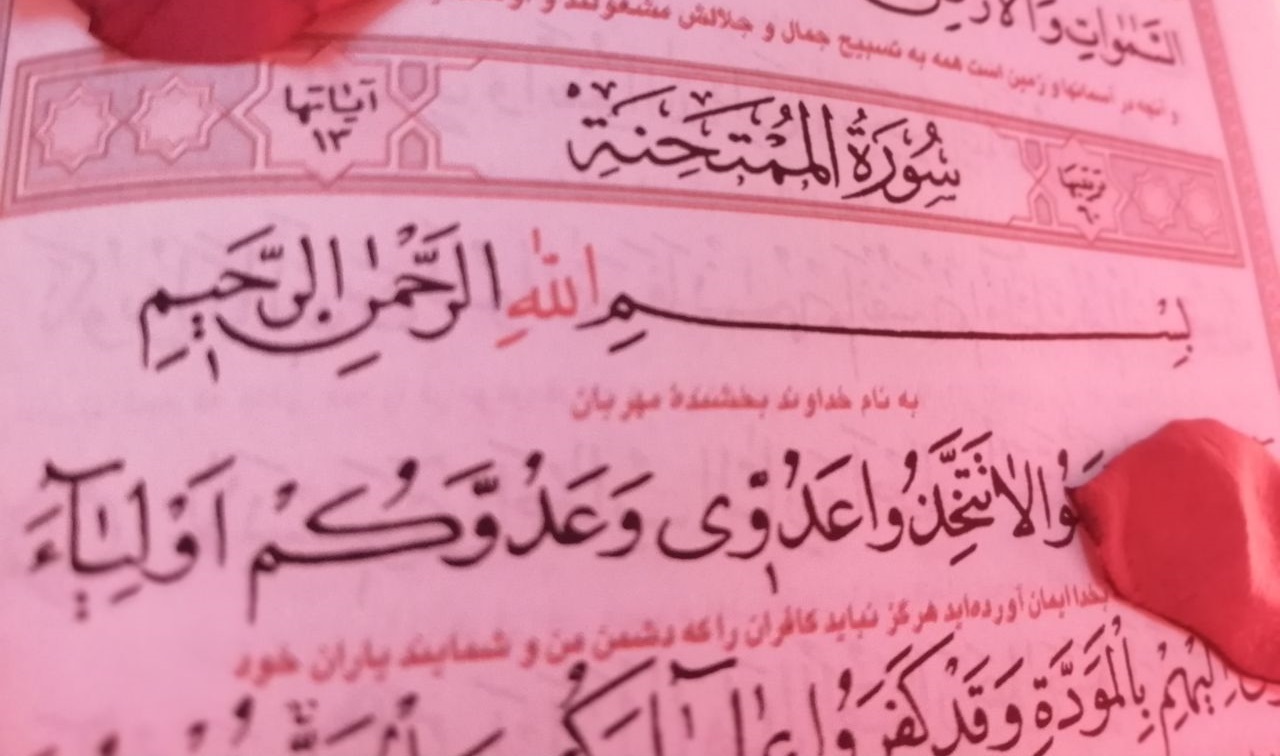 السَّمٰوَاتِ وَالْاَرْضِ
و آنچه در آسمانها و زمین است همه به تسبیح جمال و جلالش مشغولند و
آیٰاتها ١٣ سُورَةُ الْمُمْتَحِنَة
بِسْمِ اللّٰهِ الرَّحْمٰنِ الرَّحیمِ
به نام خداوند بخشندهٔ مهربان
لٰا تَتَّخِذُوا عَدُوّی وَ عَدُوَّكُمْ اَوْلِیٰآءَ
بخدا ایمان آورده‌اید هرگز نباید کافران را که دشمن من و شمایند یاران خود
اِلَیْهِمْ بِالْمَوَدَّةِ وَ قَدْ كَفَرُوا